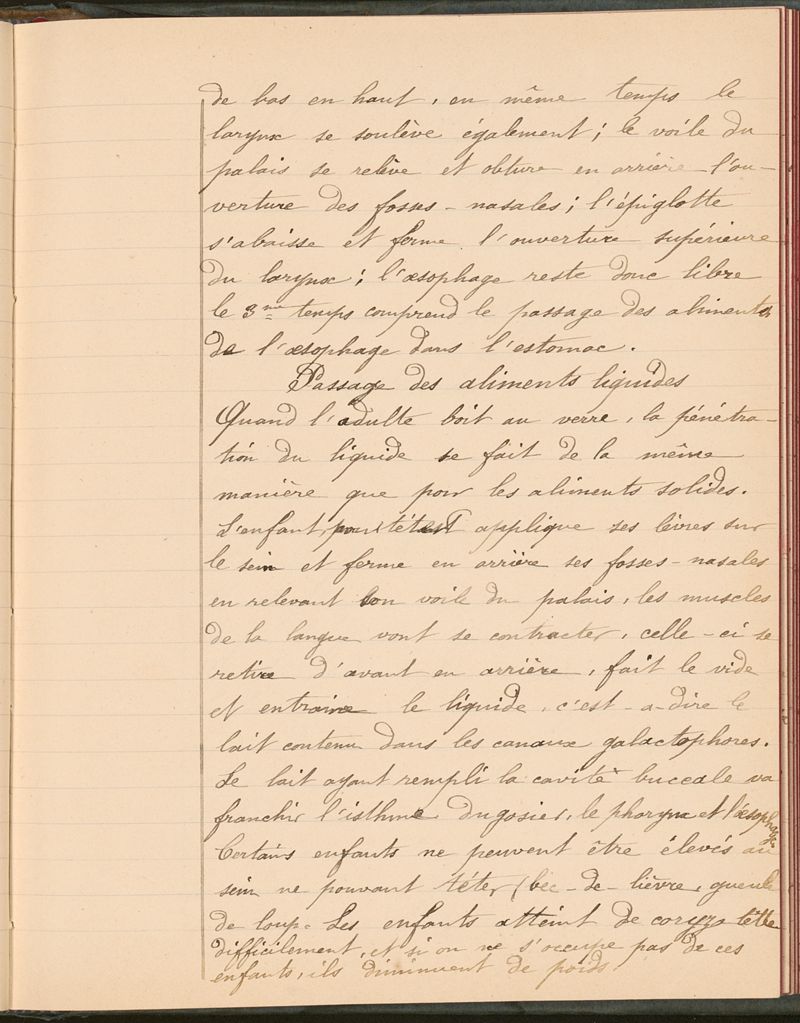 de bas en haut, en même temps le
larynx se soulève également; le voile du
palais se relève et obture en arrière l'ou-
verture des fosses-nasales; l'épiglotte
s'abaisse et ferme l'ouverture supérieure
du larynx; l'œsophage reste donc libre
le 3me temps comprend le passage des aliments
de l'œsophage dans l'estomac.
Passage des aliments liquides
Quand l'adulte boit au verre, la pénétra-
tion du liquide se fait de la même
manière que pour les aliments solides.
L'enfant applique ses lèvres sur
le sein et ferme en arrière ses fosses-nasales
en relevant son voile du palais, les muscles
de la langue vont se contracter, celle-ci se
retire d'avant en arrière, fait le vide
et entraine le liquide, c'est-a-dire le
lait contenu dans les canaux galactophores.
Le lait ayant rempli la cavité buccale va
franchir l'isthme du gosier, le pharynx et l'œsophage
Certains enfants ne peuvent être élevés au
sein ne pouvant téter (bec-de-lièvre, gueule
de loup. Les enfants atteint de coryza tette
difficilement, et si on ne s'occupe pas de ces
enfants, ils diminuent de poids.